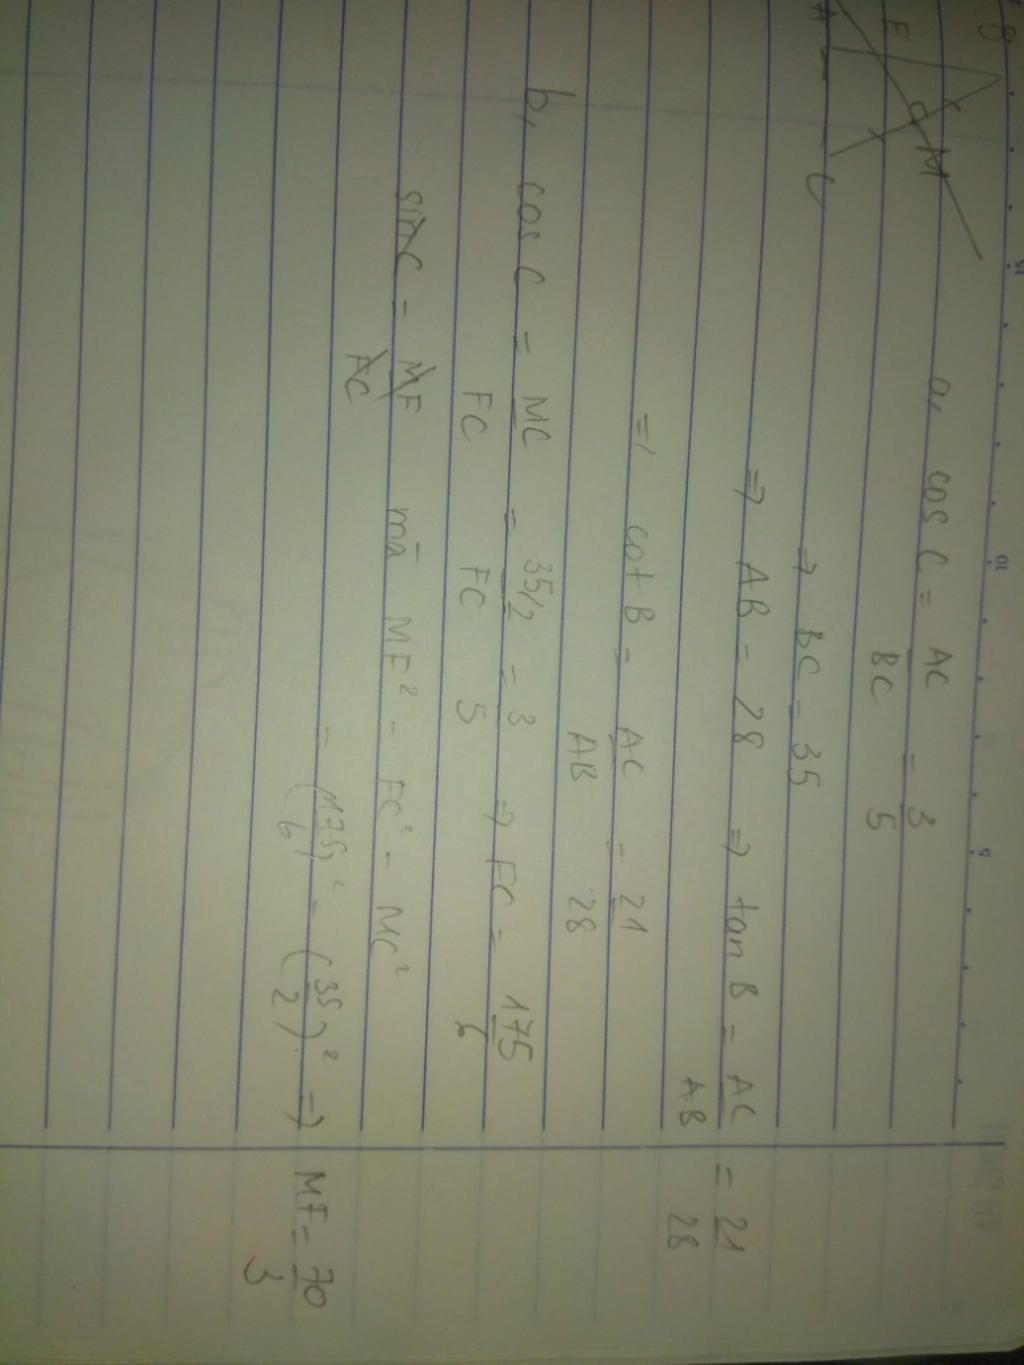 B
E
M
A
C
a, cos C = AC/BC = 3/5
⇒ BC = 35
⇒ AB = 28 ⇒ tan B = AC/AB = 21/28
=) cot B = AC/AB = 21/28
b, cos C = MC/FC = 35/2/FC = 3/5 ⇒ FC = 175/6
sin C = MF/FC mà MF² = FC² - MC²
= (175/6)² - (35/2)² ⇒ MF = 70/3
15
10
5